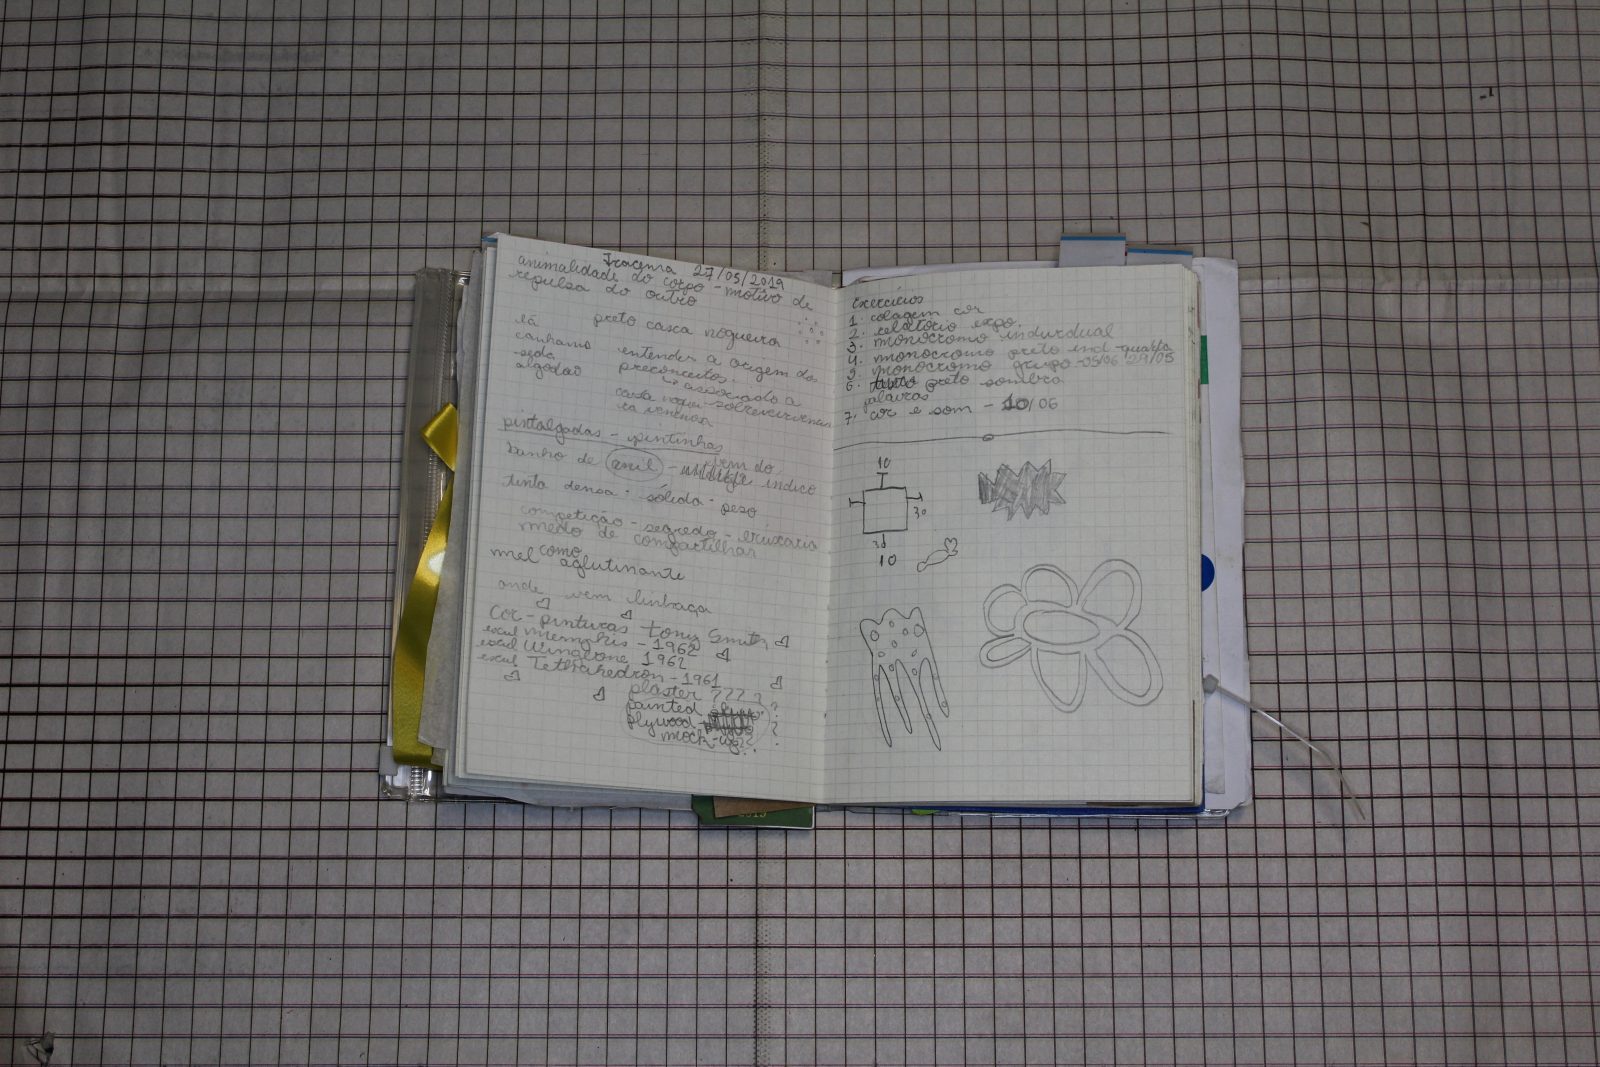 Iracema 27/05/2019
animalidade do corpo - motivo de
repulsa do outro
preto casca nogueira
lã
canhamo
seda
algodão
entender a origem dos
preconceitos.
↳ associado a
sobrevivência
casca
venenosa
pintalgadas - pintinhas
banho de anil - vem do
índico
tinta densa: sólida - peso
competição - segredo - bruxaria
medo de compartilhar
mel como
aglutinante
onde vem linhaça
Cor - pinturas Tony Smith
escul Memphis - 1962
escul Wingbone 1962
escul Tetrahedron - 1961
plaster ???
painted
plywood
mock-up?
Exercícios
1. colagem cor
2. relatório expo.
3. monocromo individual
4. monocromo preto ind - quarta
29/05
5. monocromo grupo - 05/06
6. preto sombra
palavras
7. cor e som - 10/06
10
30
30
10
2019